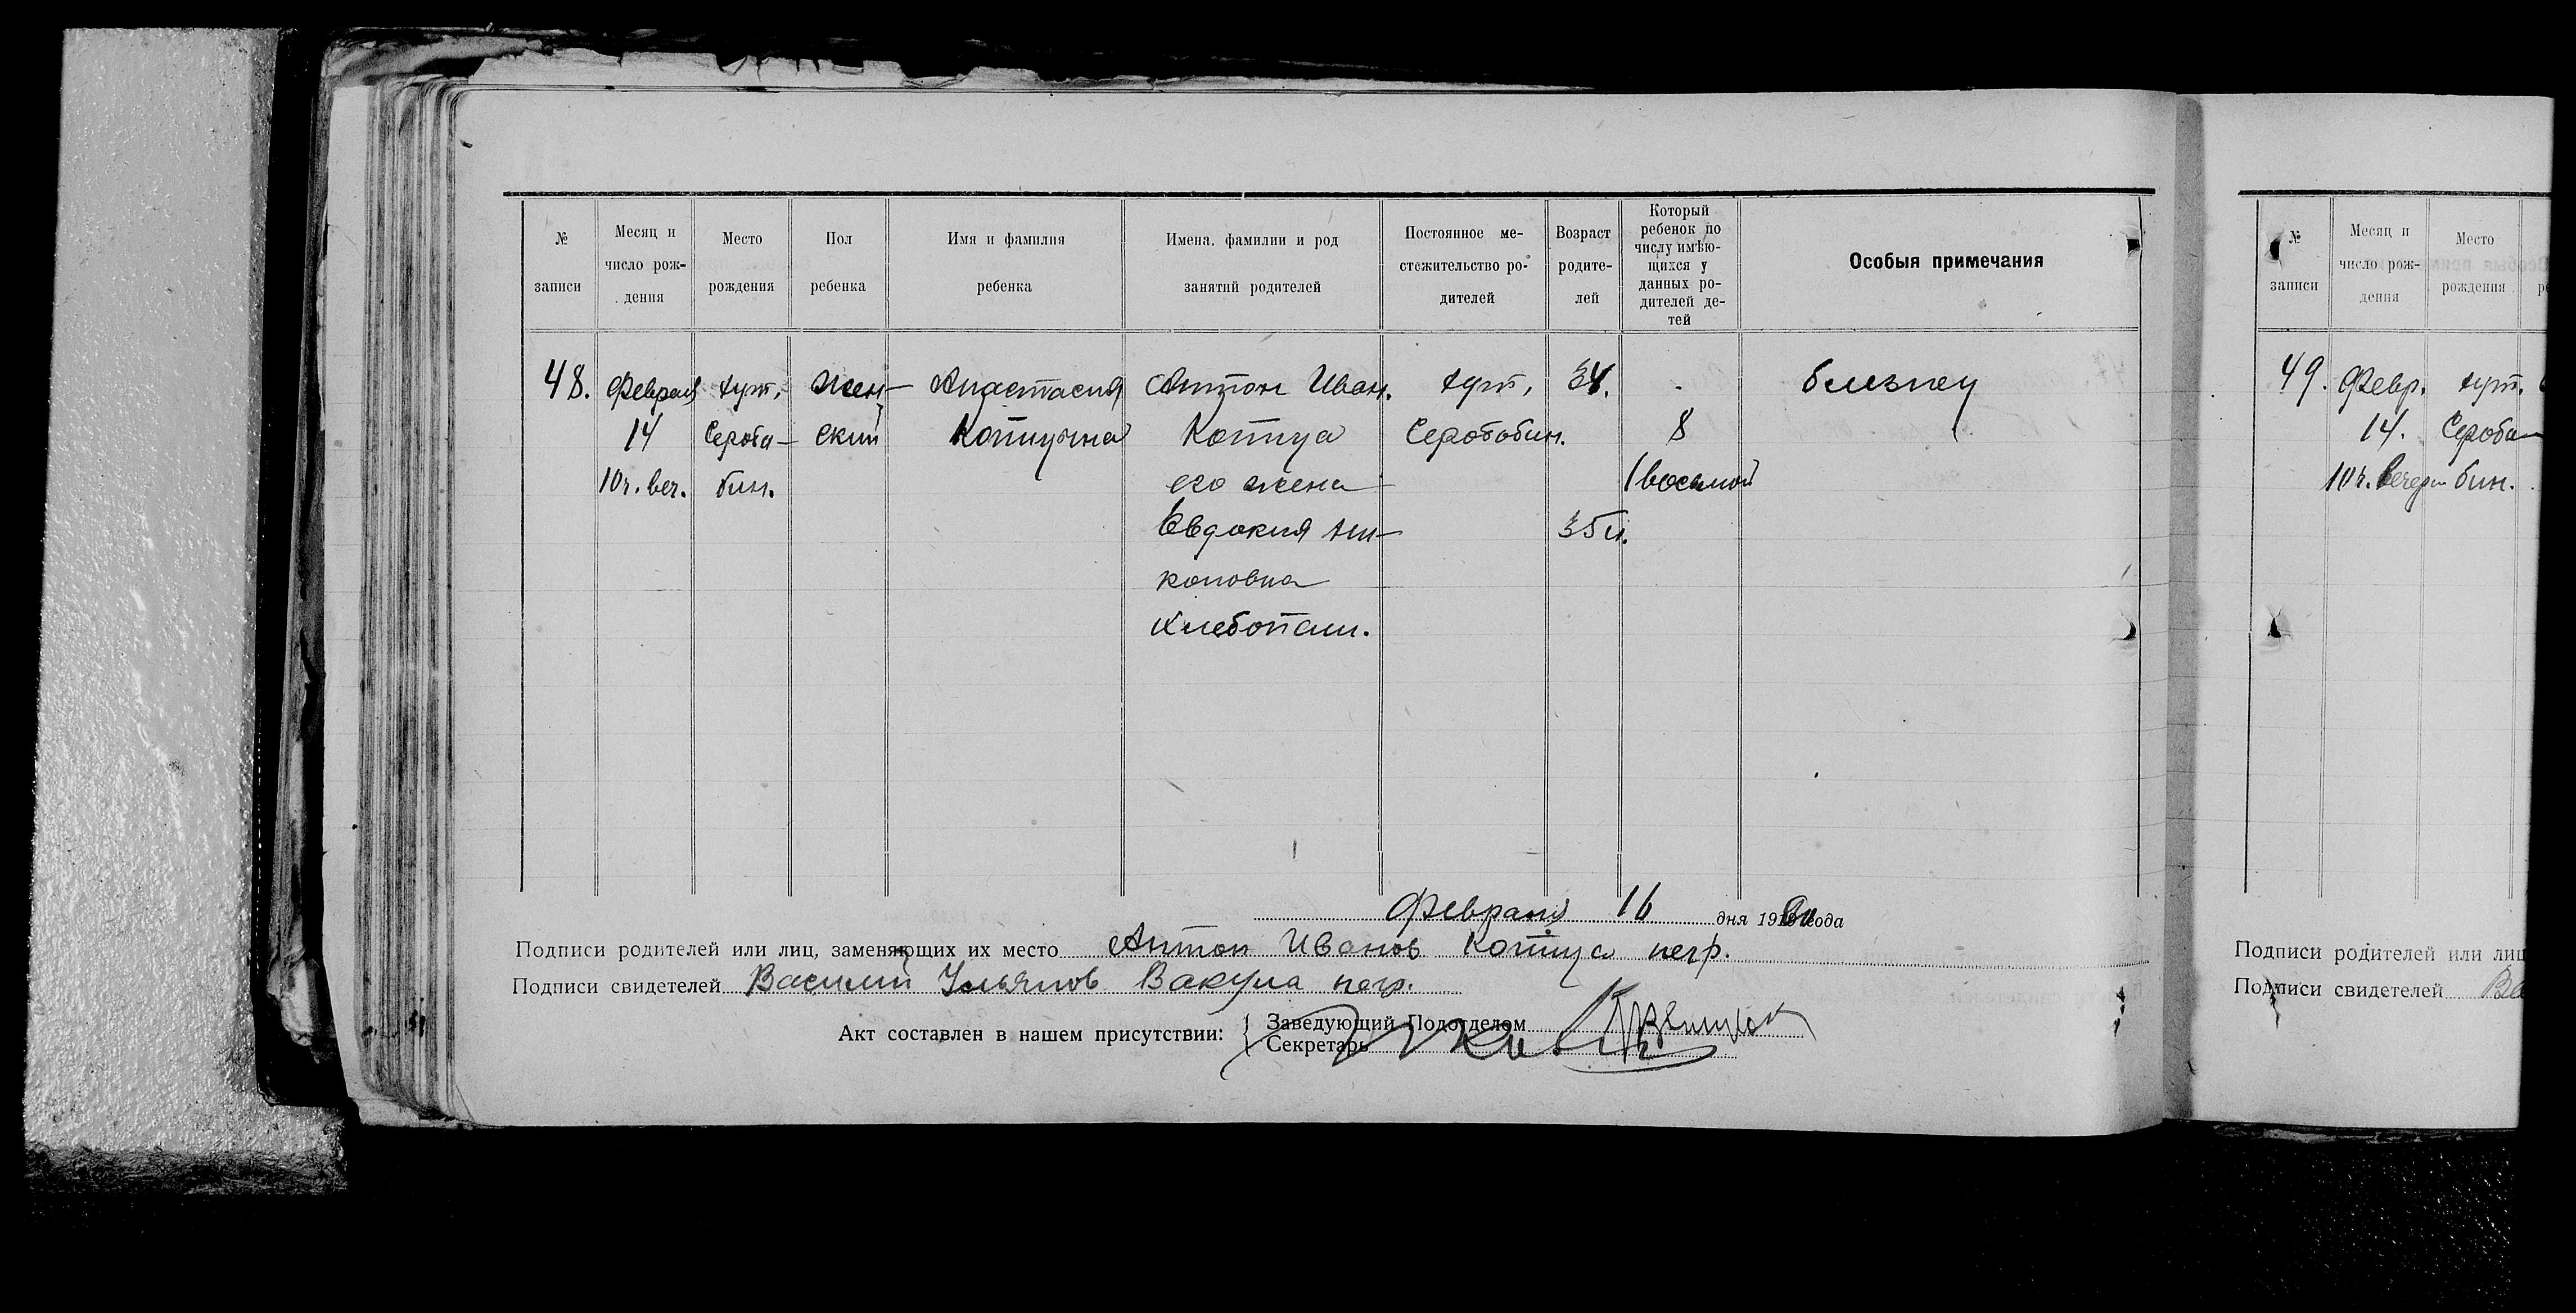 № записи
Месяц и число рож-дения
Место рождения
Пол ребенка
Имя и фамилия ребенка
Имена. фамилии и род занятий родителей
Постоянное ме-стежительство ро-дителей
Возраст родите-лей
Который ребенок по числу имѣю-щихся у данных ро-дителей де-тей
Особыя примечания
48. Февраля хут. жен- Анастасия Антон Иван. хут. 34.
14 Сероба- ский Коптуа Серобобин. 8
10ч. веч. бин. его жена (восьмой
Евдокия Ни- 35 л.
коновна
Хлебопаш.
близнец
Февраля 16 дня 19 года
Подписи родителей или лиц, заменяющих их место Антон Иванов негр.
Подписи свидетелей Василий Ульянов Вакула негр.
Акт составлен в нашем присутствии:
Заведующий Подотделом
Секретарь
№ записи
Месяц и число рож-дения
Место рождения
49. Февр. хут.
14. Сероба-
10ч. вечера бин.
Подписи родителей или лиц
Подписи свидетелей